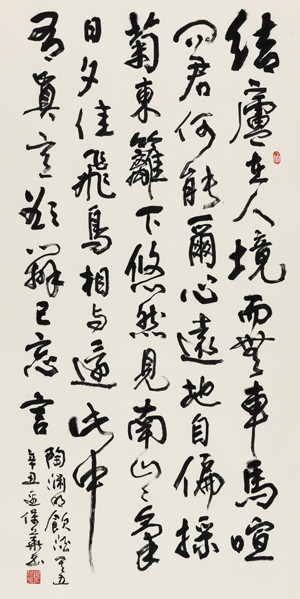 結廬在人境而無車馬喧
問君何能爾心遠地自偏採
菊東籬下悠然見南山々氣
日夕佳飛鳥相與還此中
有眞意欲辨已忘言
陶淵明飲酒其五
辛丑